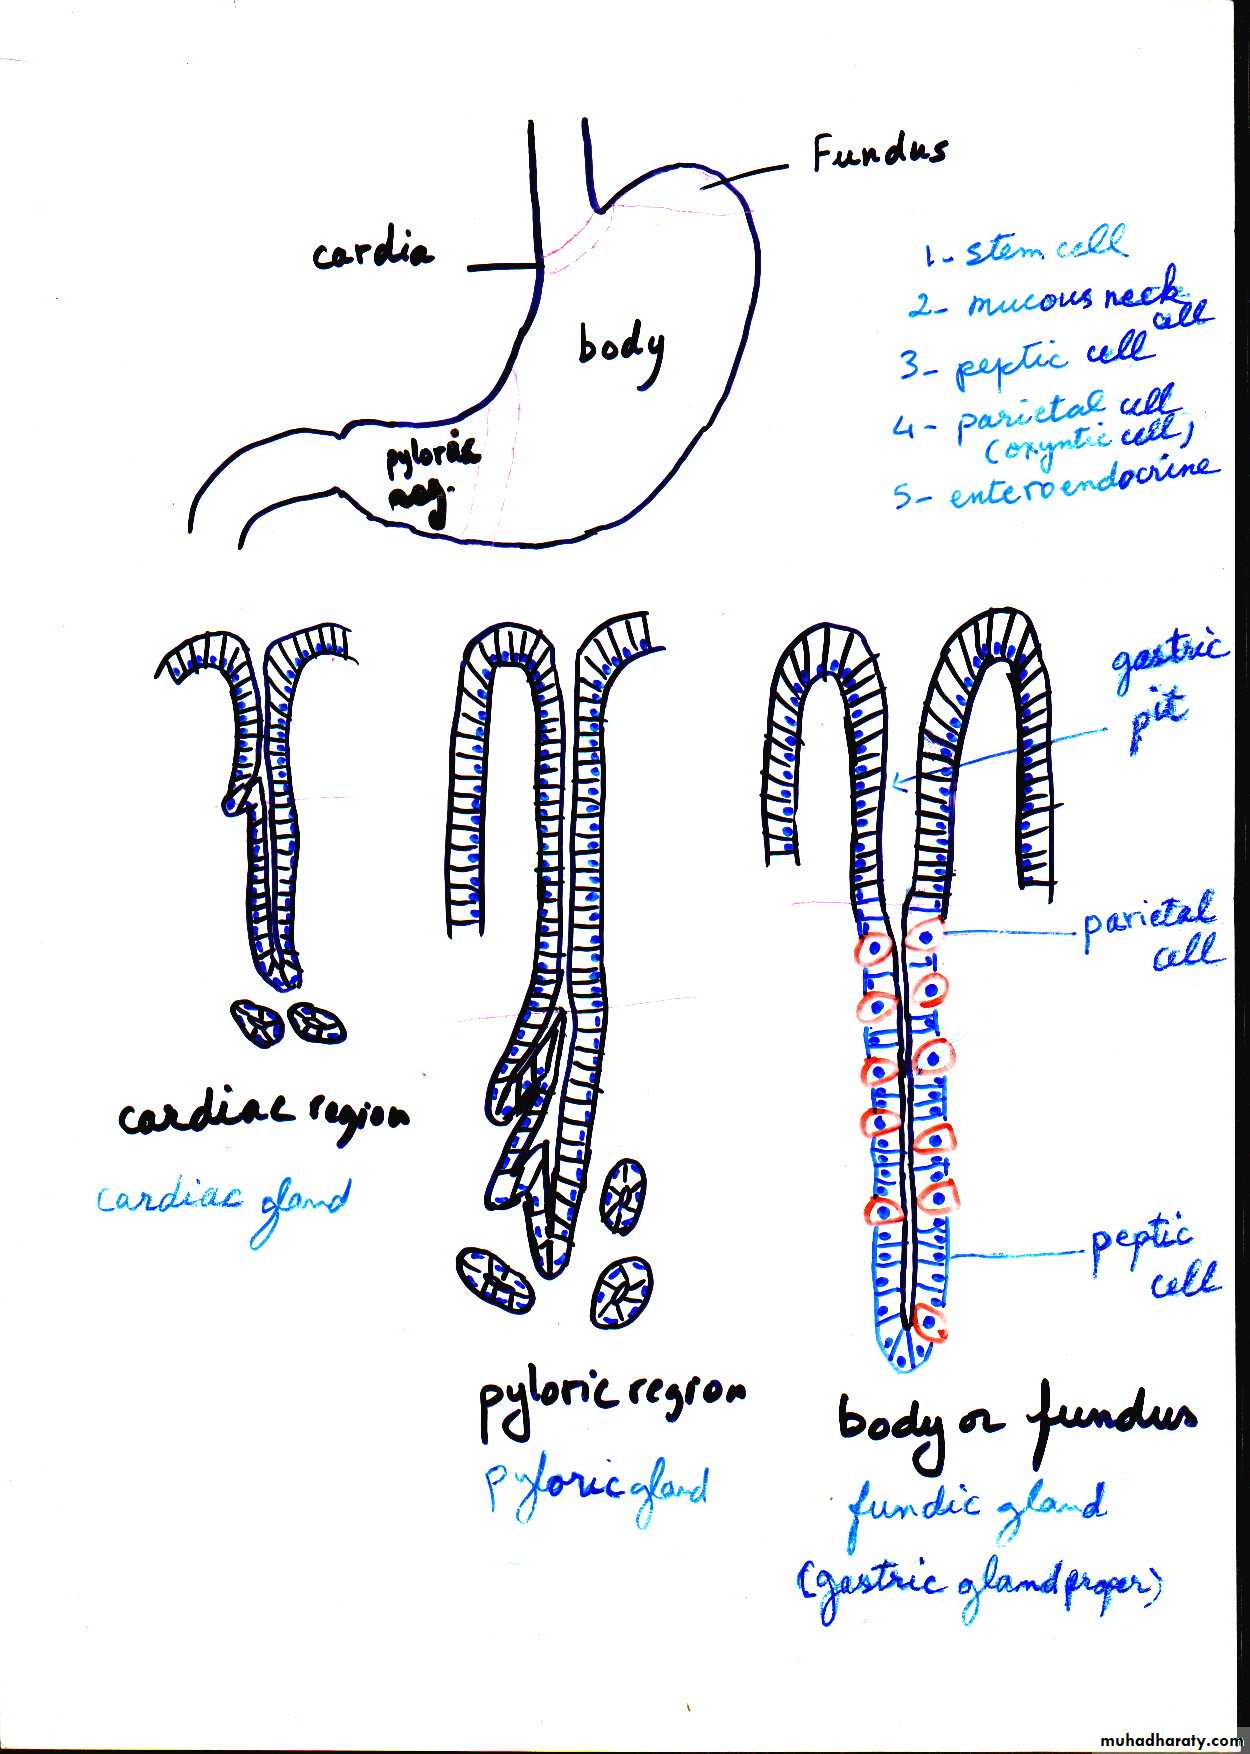 Fundus
cardia
body
pyloric
reg.
1- stem cell
2- mucous neck
cell
3- peptic cell
4- parietal cell
(oxyntic cell)
5- enteroendocrine
gastric
pit
parietal
cell
peptic
cell
cardiac region
cardiac gland
pyloric region
pyloric gland
body or fundus
fundic gland
(gastric gland proper)
muhadharaty.com